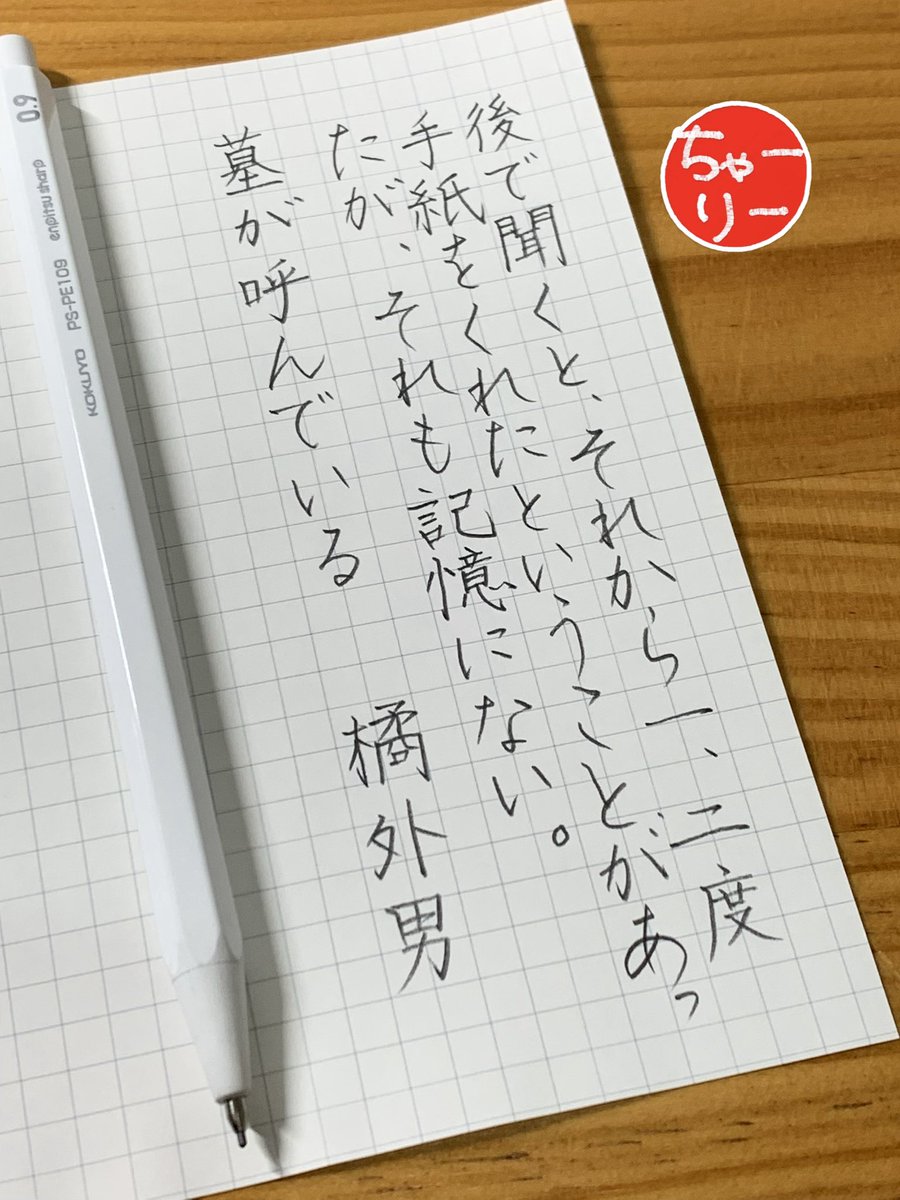 後で聞くと、それから一、二度
手紙をくれたということがあっ
たが、それも記憶にない。
墓が呼んでいる　橘外男
ちゃーりー
KOKUYO PS-PE109 enpitsu sharp 0.9